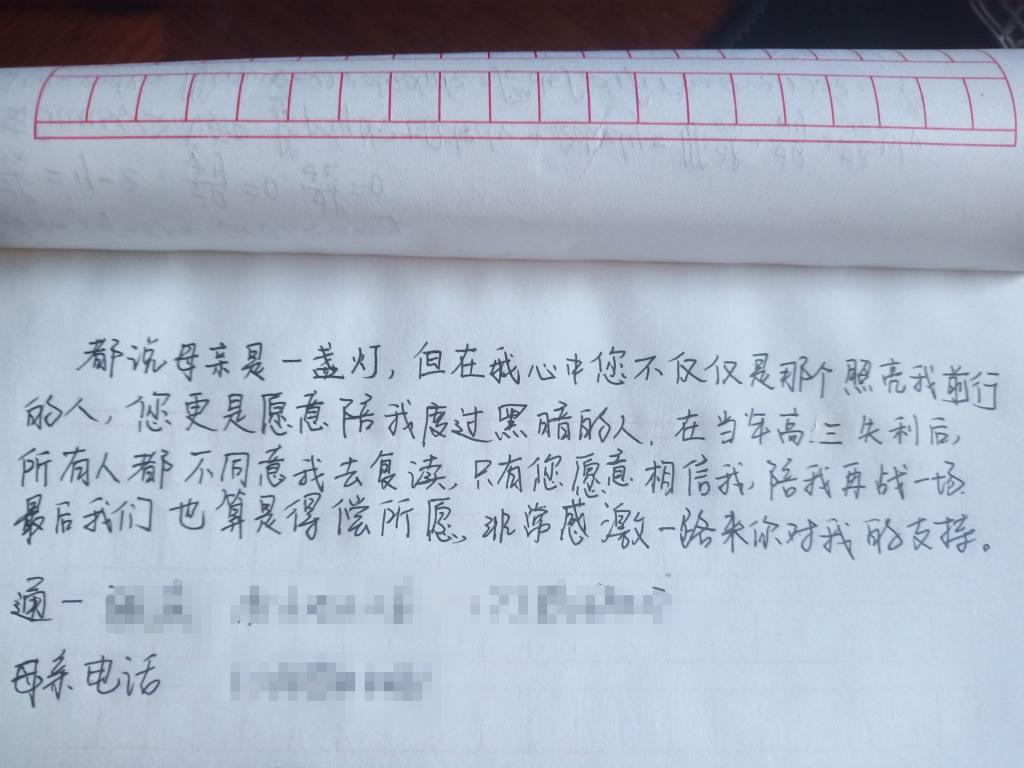 都说母亲是一盏灯，但在我心中您不仅仅是那个照亮我前行
的人，您更是愿意陪我度过黑暗的人。在当年高三失利后，
所有人都不同意我去复读，只有您愿意相信我，陪我再战一场
最后我们也算是得偿所愿，非常感激一路来你对我的支持。
通一
母亲电话